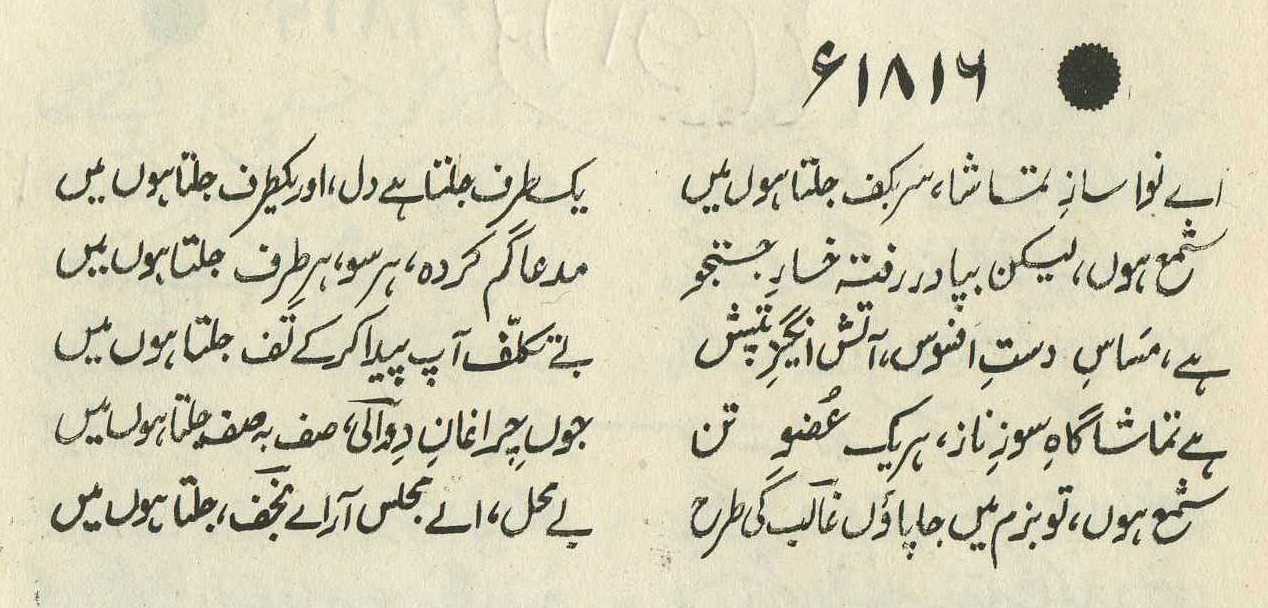 ۱۸۱۶ء
اے نوا سازِ تماشا، سر بکف جلتا ہوں میں یک طرف جلتا ہے دل، اور یکطرف جلتا ہوں میں
شمع ہوں، لیکن بپا در رفتہ خارِ جستجو مدعا گم کردہ، ہر سو، ہر طرف جلتا ہوں میں
ہے، مَساسِ دستِ افسوس، آتش انگیزِ تپش بے تکلّف آپ پیدا کر کے تَف جلتا ہوں میں
ہے تماشا گاہِ سوزِ ناز، ہر یک عُضوِ تن جوں چراغانِ دِوالی، صف بہ صف جلتا ہوں میں
شمع ہوں، تو بزم میں جا پاؤں غالب کی طرح بے محل، اے مجلس آراے نجف، جلتا ہوں میں